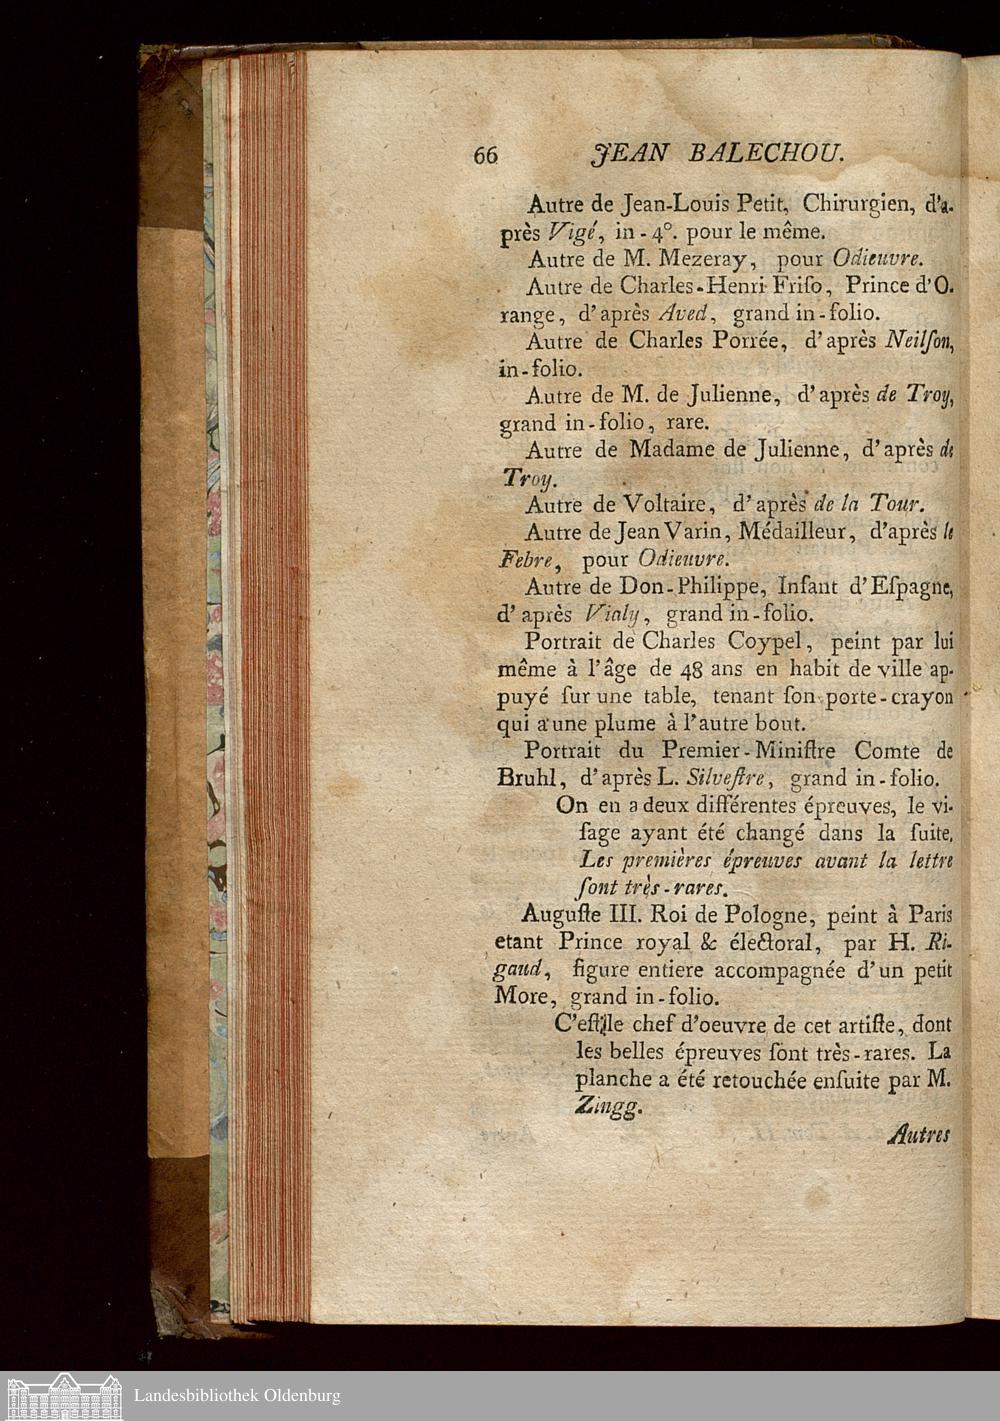 66 JEAN BALECHOU.
Autre de Jean-Louis Petit, Chirurgien, d'a-
près Vigé, in-4°. pour le même.
Autre de M. Mezeray, pour Odieuvre.
Autre de Charles-Henri Friſo, Prince d'O-
range, d'après Aved, grand in-folio.
Autre de Charles Porrée, d'après Neilſon,
in-folio.
Autre de M. de Julienne, d'après de Troy,
grand in-folio, rare.
Autre de Madame de Julienne, d'après de
Troy.
Autre de Voltaire, d'après de la Tour.
Autre de Jean Varin, Médailleur, d'après le
Febre, pour Odieuvre.
Autre de Don-Philippe, Infant d'Eſpagne,
d'après Vialy, grand in-folio.
Portrait de Charles Coypel, peint par lui
même à l'âge de 48 ans en habit de ville ap-
puyé ſur une table, tenant ſon porte-crayon
qui a une plume à l'autre bout.
Portrait du Premier-Miniſtre Comte de
Bruhl, d'après L. Silveſtre, grand in-folio.
On en a deux différentes épreuves, le vi-
ſage ayant été changé dans la ſuite.
Les premières épreuves avant la lettre
ſont très-rares.
Auguſte III. Roi de Pologne, peint à Paris
etant Prince royal & électoral, par H. Ri-
gaud, figure entiere accompagnée d'un petit
More, grand in-folio.
C'eſt le chef d'oeuvre de cet artiſte, dont
les belles épreuves ſont très-rares. La
planche a été retouchée enſuite par M.
Zingg.
Autres
Landesbibliothek Oldenburg